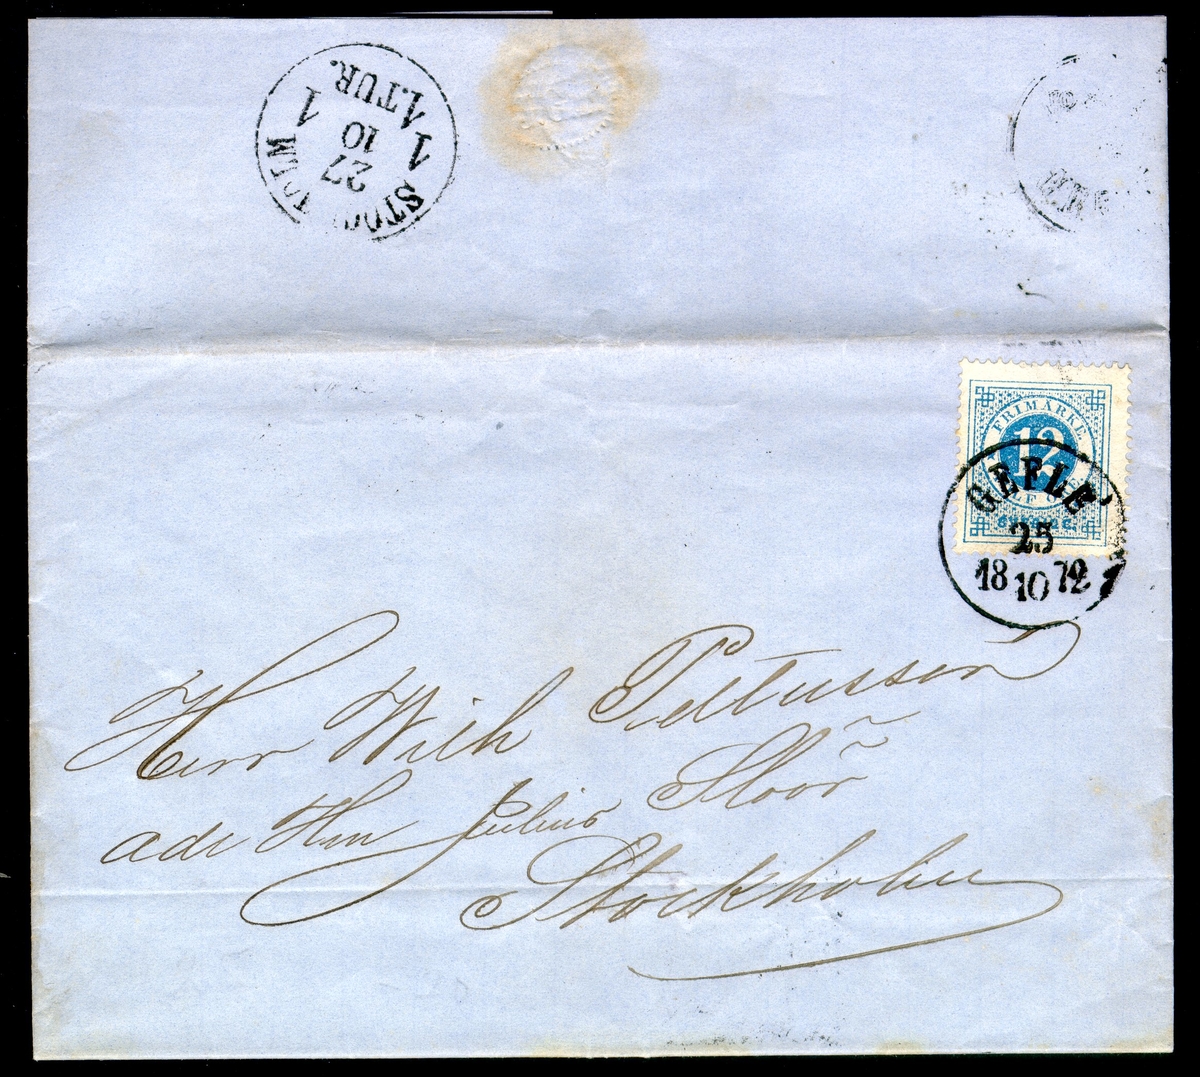 1 STOCKHOLM 1
27
10
1.TUR.
FRIMÄRKE
12
SVERIGE.
GEFLE
25
18 10 72
Herr Wilh Pettersson
adr Hrn Julius Sloör
Stockholm